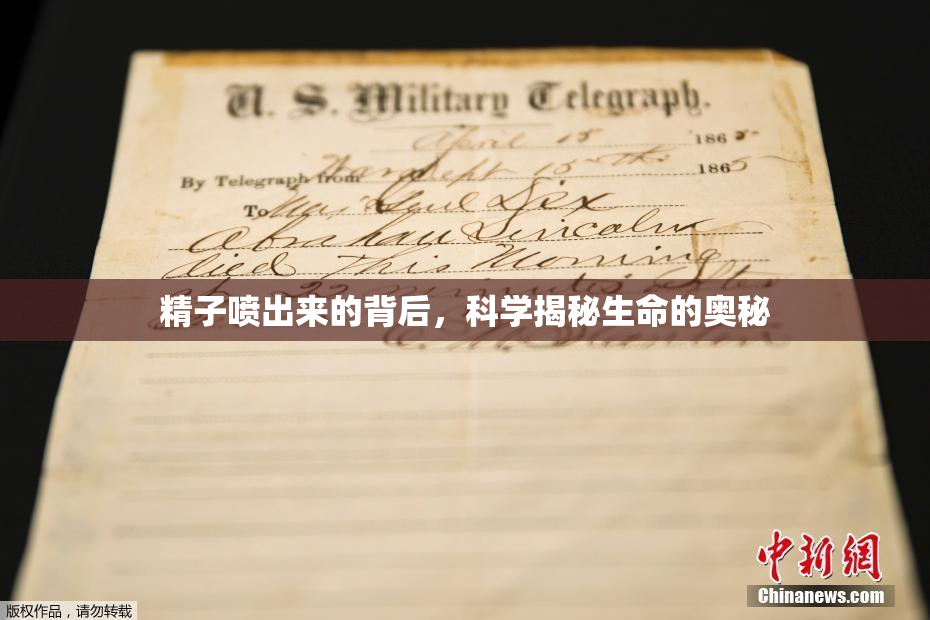 U. S. Military Telegraph.
April 15 1865
By Telegraph from War Dept 15th 1865
To Maj Genl Dix
Abraham Lincoln
died This Morning
at 22 minutes after
精子喷出来的背后，科学揭秘生命的奥秘
E. M. Stanton
中新网
Chinanews.com
版权作品，请勿转载